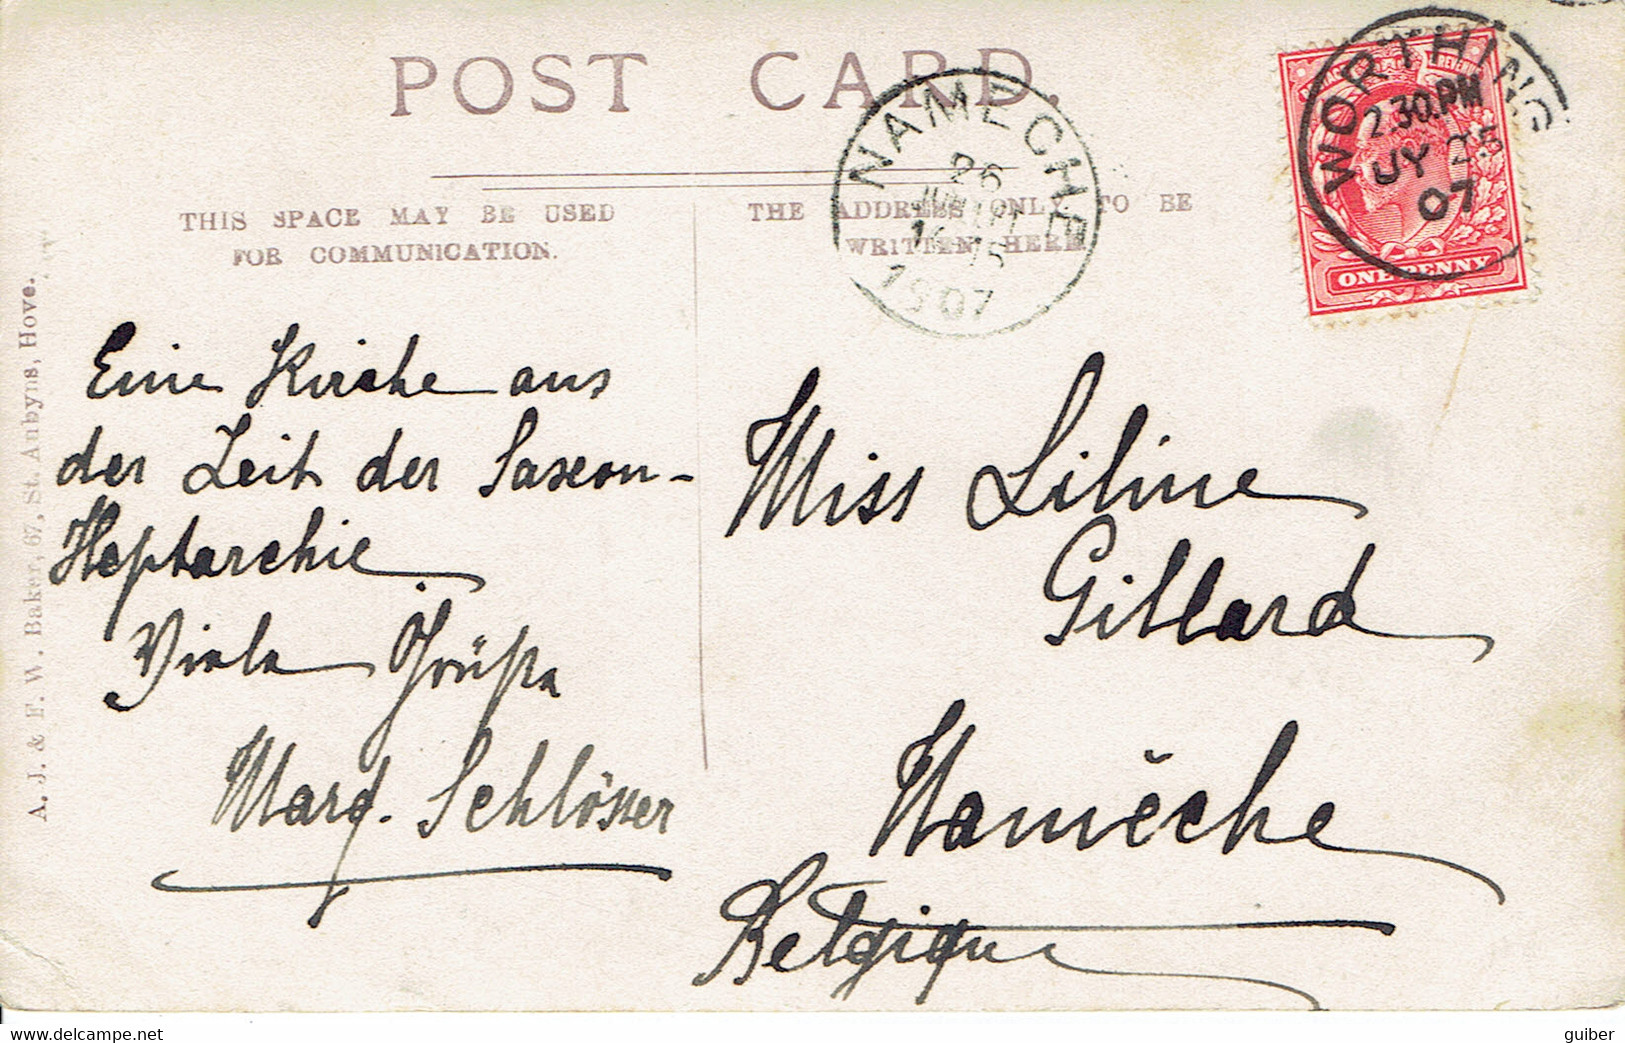 POST CARD.
THIS SPACE MAY BE USED
FOR COMMUNICATION.
THE ADDRESS ONLY TO BE
WRITTEN HERE
NAMECHE
26
1907
WORTHING
2.30.PM
JY 25
07
ONE PENNY
A. J. & F. W. Baker, 67, St. Aubyns, Hove.
Eine Kirche aus
der Zeit der Saxon-
Heptarchie
Viele Grüße
Marg. Schlösser
Miss Liline
Gillard
Namêche
Belgique
www.delcampe.net
guiber